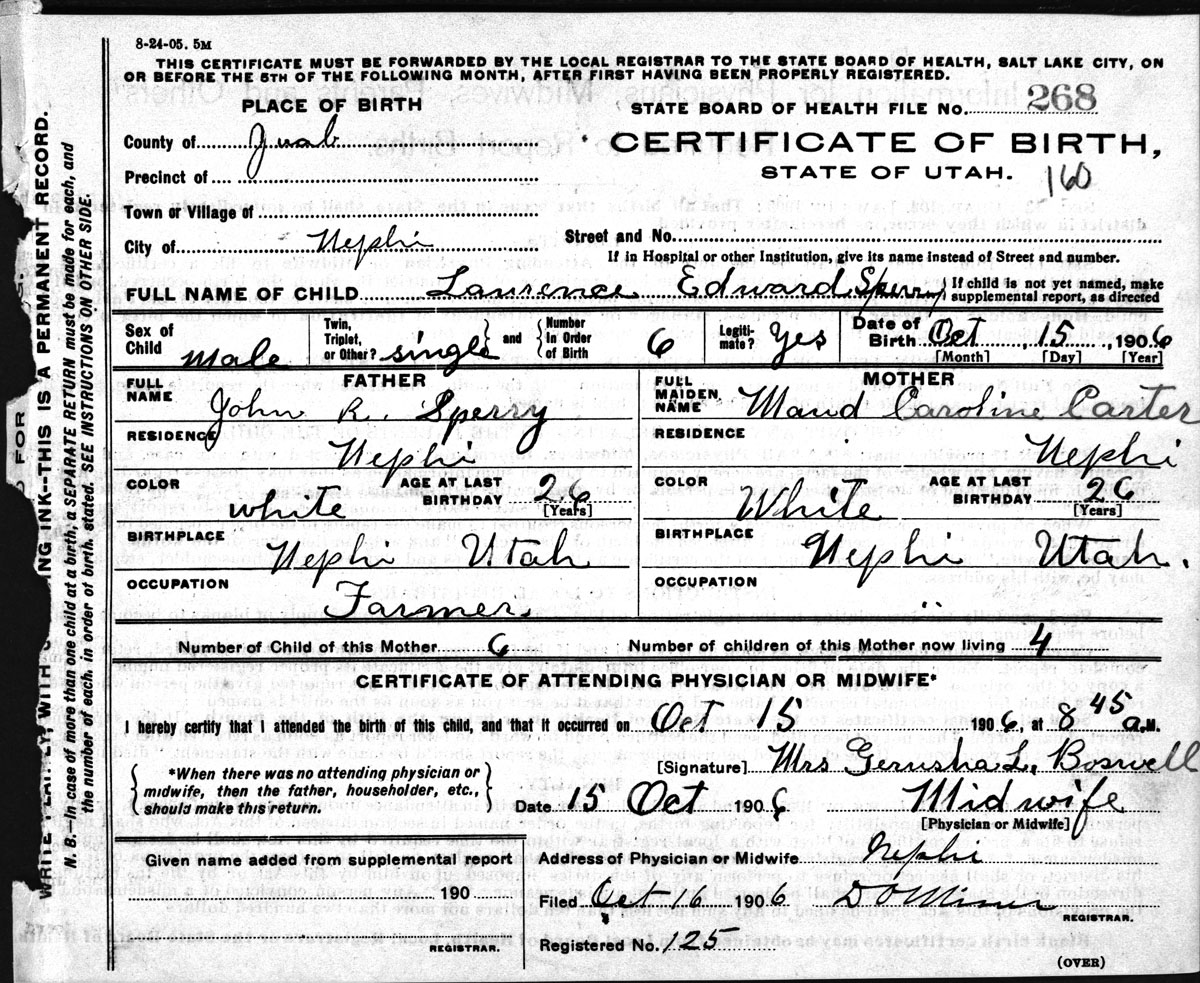 8-24-05. 5M
THIS CERTIFICATE MUST BE FORWARDED BY THE LOCAL REGISTRAR TO THE STATE BOARD OF HEALTH, SALT LAKE CITY, ON
OR BEFORE THE 5TH OF THE FOLLOWING MONTH, AFTER FIRST HAVING BEEN PROPERLY REGISTERED.
PLACE OF BIRTH
STATE BOARD OF HEALTH FILE No. 268
County of Juab
CERTIFICATE OF BIRTH,
Precinct of
STATE OF UTAH. 160
Town or Village of
City of Nephi
Street and No.
If in Hospital or other Institution, give its name instead of Street and number.
FULL NAME OF CHILD Laurence Edward Sperry { If child is not yet named, make
supplemental report, as directed
Sex of Child male
Twin, Triplet, or Other? single } and { Number in Order of Birth 6
Legiti-mate? Yes
Date of Birth Oct 15, 1906
[Month] [Day] [Year]
FATHER
FULL NAME John R. Sperry
RESIDENCE Nephi
COLOR white
AGE AT LAST BIRTHDAY 26 [Years]
BIRTHPLACE Nephi Utah
OCCUPATION Farmer
MOTHER
FULL MAIDEN NAME Maud Caroline Carter
RESIDENCE Nephi
COLOR White
AGE AT LAST BIRTHDAY 26 [Years]
BIRTHPLACE Nephi Utah.
OCCUPATION
Number of Child of this Mother 6
Number of children of this Mother now living 4
CERTIFICATE OF ATTENDING PHYSICIAN OR MIDWIFE*
I hereby certify that I attended the birth of this child, and that it occurred on Oct 15 1906, at 8 45 a.M.
{ *When there was no attending physician or
midwife, then the father, householder, etc.,
should make this return. }
[Signature] Mrs Gerusha L. Boswell
Date 15 Oct 1906 Midwife
[Physician or Midwife]
Given name added from supplemental report
190
REGISTRAR.
Address of Physician or Midwife Nephi
Filed Oct 16 1906 D O Miner
REGISTRAR.
Registered No. 125
(OVER)
INK--THIS IS A PERMANENT RECORD.
N. B.--In case of more than one child at a birth, a SEPARATE RETURN must be made for each, and
the number of each, in order of birth, stated. SEE INSTRUCTIONS ON OTHER SIDE.
FOR